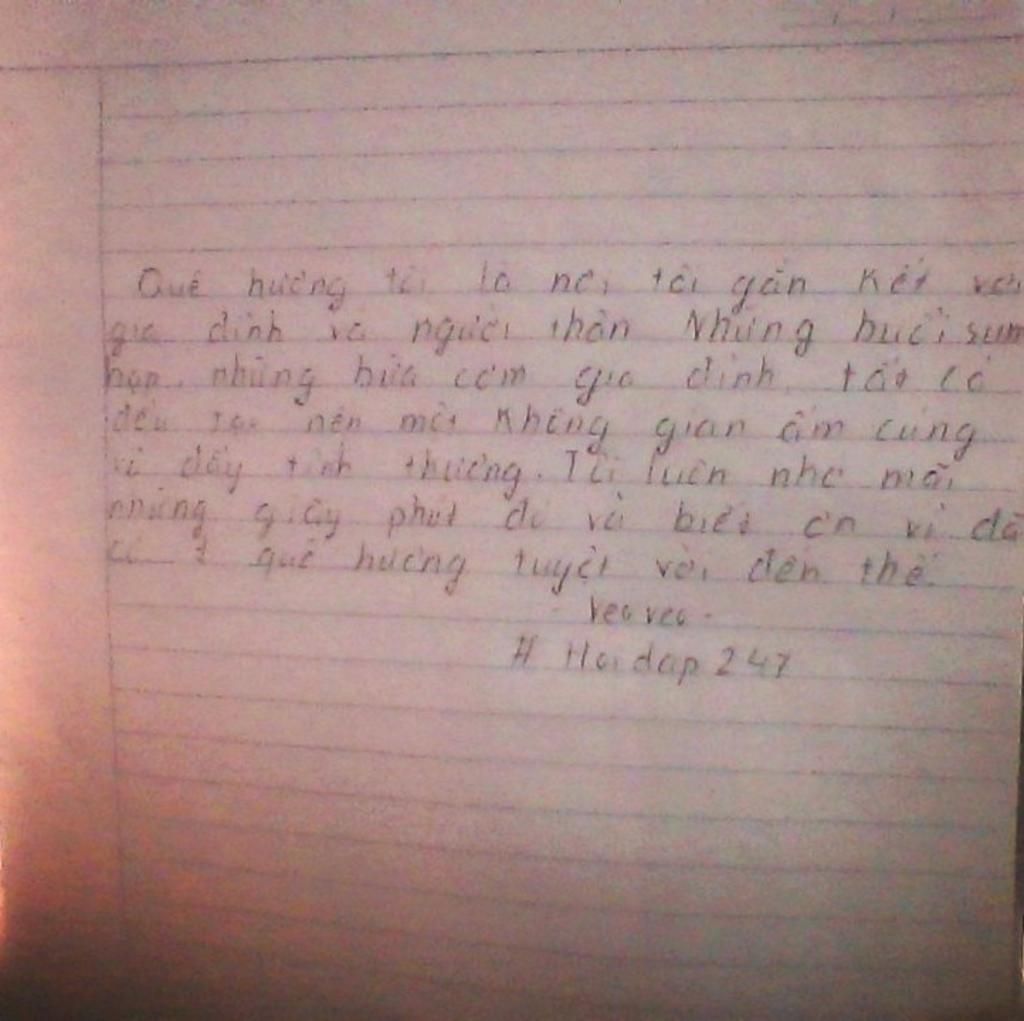 Quê hương tôi là nơi tôi gắn kết với
gia đình và người thân Những buổi sum
họp, những bữa cơm gia đình, tất cả
đều tạo nên một không gian ấm cúng
và đầy tình thương. Tôi luôn nhớ mãi
những giây phút đó và biết ơn vì đã
có 1 quê hương tuyệt vời đến thế.
- Veo veo -
# Hoidap 247